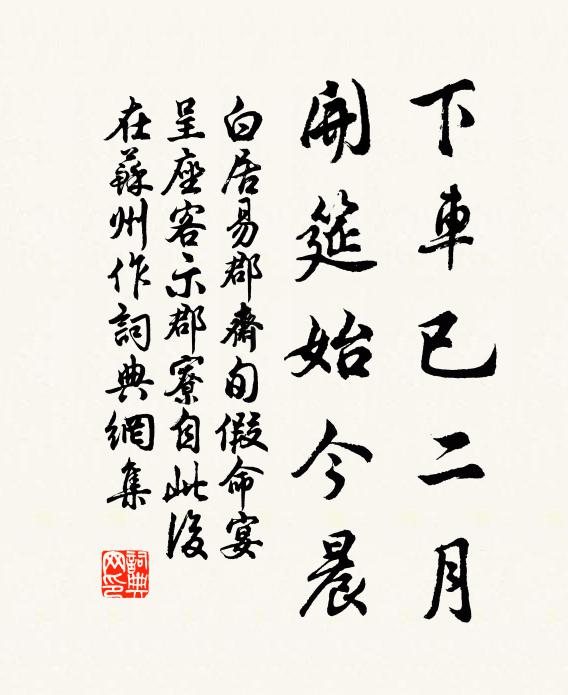 下車已二月
開筵始今晨
白居易郡齋旬假命宴
呈座客示郡寮自此後
在蘇州作詞典網集
詞典網印